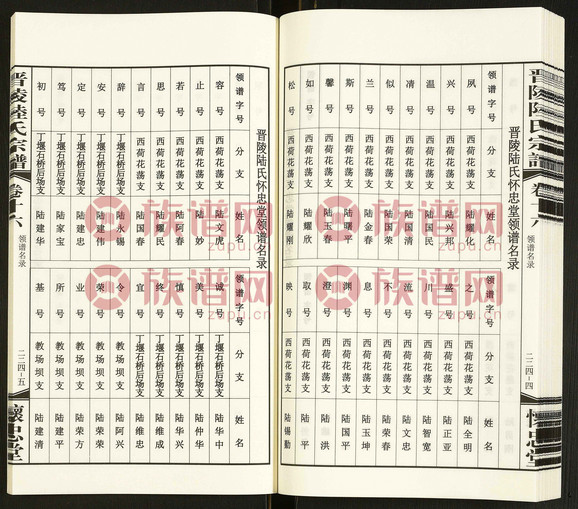 晋陵陆氏宗谱
卷十六
领谱名录
二二四-四
怀忠堂
晋陵陆氏怀忠堂领谱名录
领谱字号 分支 姓名
夙号 西荷花荡支 陆耀化
兴号 西荷花荡支 陆兴邦
温号 西荷花荡支 陆国民
清号 西荷花荡支 陆国清
似号 西荷花荡支 陆荣清
兰号 西荷花荡支 陆金春
斯号 西荷花荡支 陆曙平
馨号 西荷花荡支 陆玉春
如号 西荷花荡支 陆耀欣
松号 西荷花荡支 陆耀刚
领谱字号 分支 姓名
之号 西荷花荡支 陆全明
盛号 西荷花荡支 陆正亚
川号 西荷花荡支 陆智宽
流号 西荷花荡支 陆文忠
不号 西荷花荡支 陆荣春
息号 西荷花荡支 陆玉坤
渊号 西荷花荡支 陆国平
澄号 西荷花荡支 陆洪
取号 西荷花荡支 陆平
映号 西荷花荡支 陆锡勤
晋陵陆氏怀忠堂领谱名录
领谱字号 分支 姓名
容号 西荷花荡支 陆文虎
止号 西荷花荡支 陆妙
若号 西荷花荡支 陆阿春
思号 西荷花荡支 陆耀民
言号 西荷花荡支 陆国春
辞号 西荷花荡支 陆永锡
安号 丁堰石桥后场支 陆建伟
定号 丁堰石桥后场支 陆建忠
笃号 丁堰石桥后场支 陆家宝
初号 丁堰石桥后场支 陆建华
领谱字号 分支 姓名
诚号 丁堰石桥后场支 陆华中
美号 丁堰石桥后场支 陆仲华
慎号 丁堰石桥后场支 陆华兴
终号 丁堰石桥后场支 陆维成
宜号 丁堰石桥后场支 陆维忠
令号 教场坝支 陆阿兴
荣号 教场坝支 陆荣
业号 教场坝支 陆荣方
所号 教场坝支 陆建平
基号 教场坝支 陆建清
晋陵陆氏宗谱
卷十六
领谱名录
二二四-五
懷忠堂
族谱网
族谱网
族谱网
族谱网